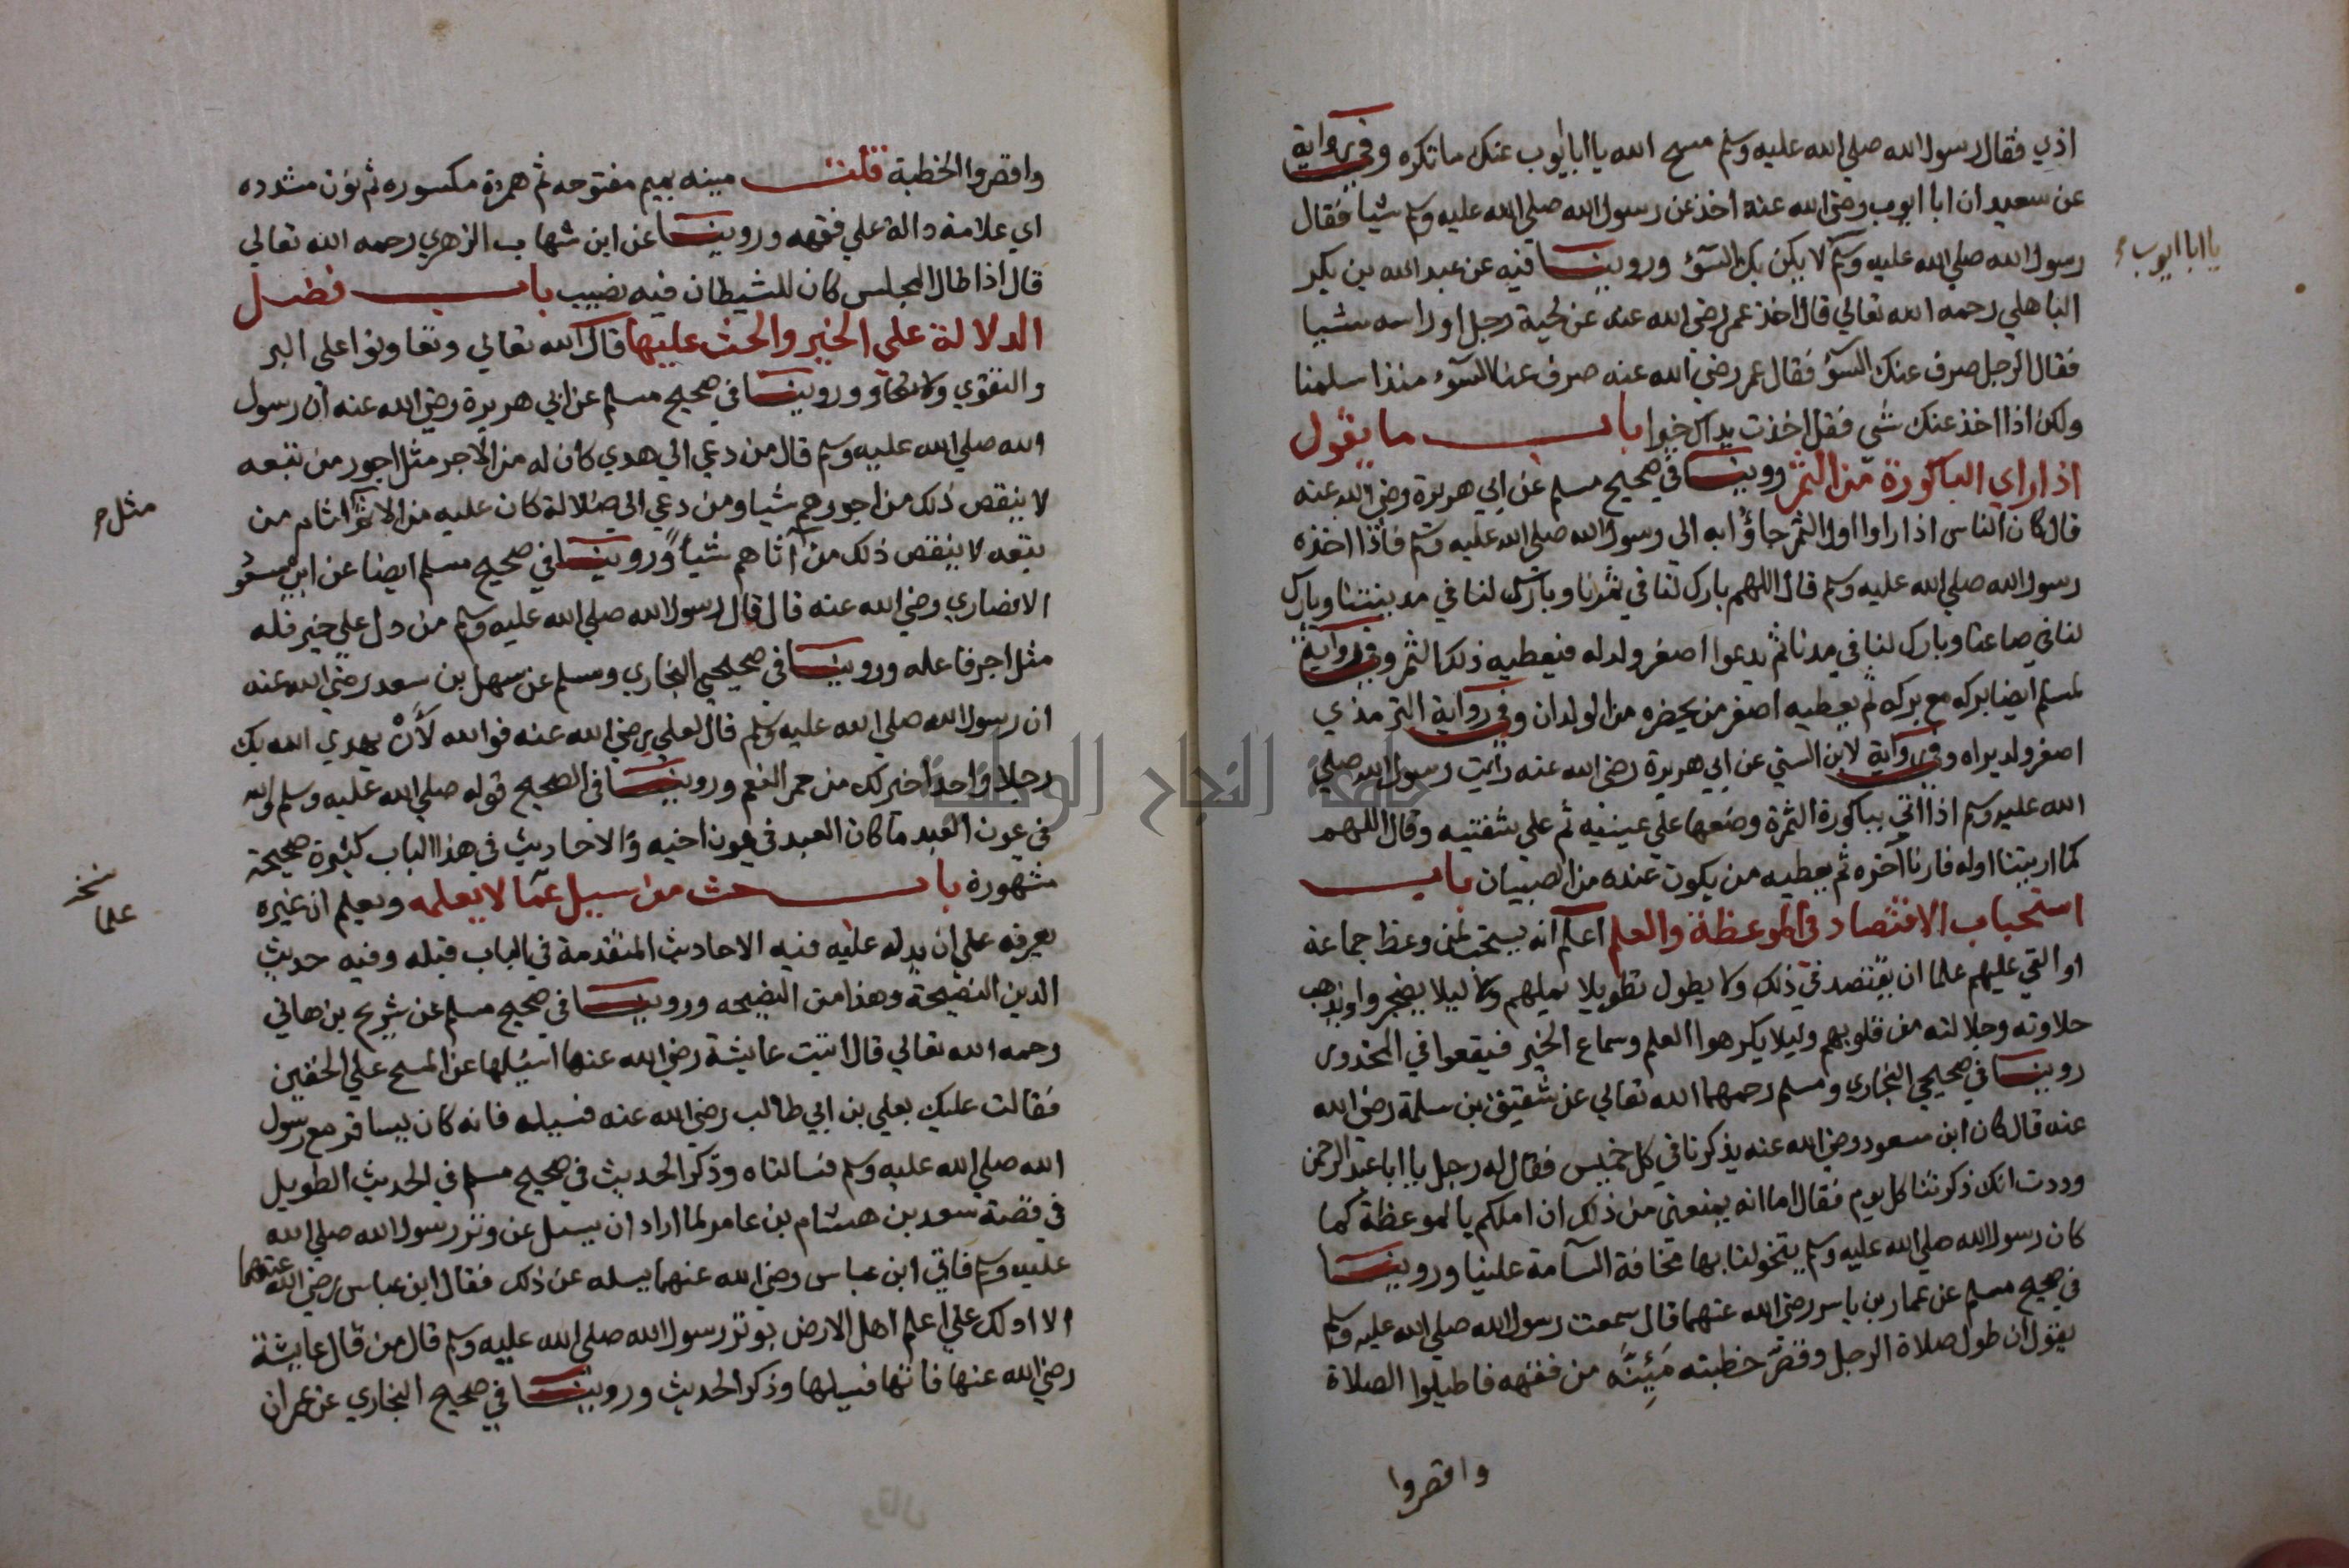 اذي فقال رسول الله صلي الله عليه وسلم مسح الله يا ابا ايوب عنك ما تكره وفي رواية
عن سعيد ان ابا ايوب رضي الله عنه اخذ عن رسول الله صلي الله عليه وسلم شيا فقال
رسول الله صلي الله عليه وسلم لا يكن بك السؤ وروينا فيه عن عبد الله بن بكر
يا ابا ايوب
الباهلي رحمه الله تعالي قال اخذ عمر رضي الله عنه عن لحية رجل او راسه شيا
فقال الرجل صرف عنك السؤ فقال عمر رضي الله عنه صرف عنا السوء منذ اسلمنا
ولكن اذا اخذ عنك شي فقل اخذت يداك خيرا باب ما يقول
اذا راي الباكورة من الثمر روينا في صحيح مسلم عن ابي هريرة رضي الله عنه
قال كان الناس اذا راوا اول الثمر جاؤا به الي رسول الله صلي الله عليه وسلم فاذا اخذه
رسول الله صلي الله عليه وسلم قال اللهم بارك لنا في ثمرنا وبارك لنا في مدينتنا وبارك
لنا في صاعنا وبارك لنا في مدنا ثم يدعوا اصغر ولد له فيعطيه ذلك الثمر وفي رواية
لمسلم ايضا بركه مع بركه ثم يعطيه اصغر من يحضره من الولدان وفي رواية الترمذي
اصغر ولد يراه وفي رواية لابن السني عن ابي هريرة رضي الله عنه رايت رسول الله صلي
الله عليه وسلم اذا اتي بباكورة الثمرة وضعها علي عينيه ثم علي شفتيه وقال اللهم
كما اريتنا اوله فارنا آخره ثم يعطيه من يكون عنده من الصبيان باب
استحباب الاقتصاد في الموعظة والعلم اعلم انه يستحب لمن وعظ جماعة
او القي عليهم علما ان يقتصد في ذلك ولا يطول تطويلا يملهم ليلا يضجروا وتذهب
حلاوته وجلالته من قلوبهم وليلا يكرهوا العلم وسماع الخير فيقعوا في المحذور
روينا في صحيحي البخاري ومسلم رحمهما الله تعالي عن شقيق بن سلمة رضي الله
عنه قال كان ابن مسعود رضي الله عنه يذكرنا في كل خميس فقال له رجل يا ابا عبد الرحمن
وددت انك ذكرتنا كل يوم فقال اما انه يمنعني من ذلك ان املكم بالموعظة كما
كان رسول الله صلي الله عليه وسلم يتخولنا بها مخافة السآمة علينا وروينا
في صحيح مسلم عن عمار بن ياسر رضي الله عنهما قال سمعت رسول الله صلي الله عليه وسلم
يقول ان طول صلاة الرجل وقصر خطبته مَئِنَّه من فقهه فاطيلوا الصلاة
واقصروا
واقصروا الخطبة قلت مينه بميم مفتوحه ثم همزة مكسوره ثم نون مشدده
اي علامة دالة علي فقهه وروينا عن ابن شهاب الزهري رحمه الله تعالي
قال اذا طال المجلس كان للشيطان فيه نصيب باب فضل
الدلالة علي الخير والحث عليها قال الله تعالي وتعاونوا علي البر
والتقوي وروينا في صحيح مسلم عن ابي هريرة رضي الله عنه ان رسول
الله صلي الله عليه وسلم قال من دعي الي هدي كان له من الاجر مثل اجور من تبعه
لا ينقص ذلك من اجورهم شيا ومن دعي الي ضلالة كان عليه من الاثم اثام من
مثل
يتبعه لا ينقص ذلك من آثامهم شيأ وروينا في صحيح مسلم ايضا عن ابي مسعود
الانصاري رضي الله عنه قال قال رسول الله صلي الله عليه وسلم من دل علي خير فله
مثل اجر فاعله وروينا في صحيحي البخاري ومسلم عن سهل بن سعد رضي الله عنه
ان رسول الله صلي الله عليه وسلم قال لعلي رضي الله عنه فوالله لأنْ يهدي الله بك
رجلا واحدا خير لك من حمر النعم وروينا في الصحيح قوله صلي الله عليه وسلم والله
في عون العبد ما كان العبد في عون اخيه والاحاديث في هذا الباب كثيرة صحيحة
مشهورة باب حث من سيل عما لا يعلمه ويعلم ان غيره
علما
يعرفه علي ان يدله عليه فيه الاحاديث المتقدمة في الباب قبله وفيه حديث
الدين النصيحة وهذا من النصيحه وروينا في صحيح مسلم عن شريح بن هاني
رحمه الله تعالي قال اتيت عايشة رضي الله عنها اسئلها عن المسح علي الخفين
فقالت عليك بعلي بن ابي طالب رضي الله عنه فسيله فانه كان يسافر مع رسول
الله صلي الله عليه وسلم فسالناه وذكر الحديث في صحيح مسلم في الحديث الطويل
في قصة سعد بن هشام بن عامر لما اراد ان يسيل عن وتر رسول الله صلي الله
عليه وسلم فاتي ابن عباس رضي الله عنهما يسله عن ذلك فقال ابن عباس رضي الله عنهما
الا ادلك علي اعلم اهل الارض بوتر رسول الله صلي الله عليه وسلم قال من قال عايشة
رضي الله عنها فاتها فسيلها وذكر الحديث وروينا في صحيح البخاري عن عمران
جامعة النجاح الوطنية